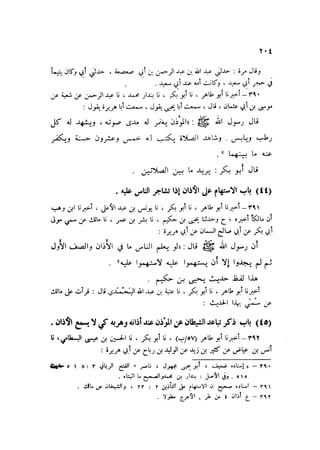 ٢٠٤
وقال مرة : حدثني عبد الله بن عبد الرحمن بن أبي صعصعة ، حدثني أبي وكان يتيماً
في حجر أبي سعيد ، وكانت أمه عند أبي سعيد .
٣٩٠ – أخبرنا أبو طاهر ، نا أبو بكر ، نا بندار ، نا محمد ، نا عبد الرحمن عن شعبة عن
موسى بن أبي عثمان ، قال : سمعت أبا يحيى يقول ، سمعت أبا هريرة يقول :
قال رسول الله ﷺ : «المؤذن يغفر له مدى صوته ، ويشهد له كل
رطب ويابس . وشاهد الصلاة يكتب له خمس وعشرون حسنة ويكفر
عنه ما بينهما » .
قال أبو بكر : يريد ما بين الصلاتين .
(٤٤) باب الاستهام على الأذان إذا تشاجر الناس عليه .
٣٩١ – أخبرنا أبو طاهر ، نا أبو بكر ، نا يونس بن عبد الأعلى ، أخبرنا ابن وهب
أن مالكاً أخبره ؛ ح وحدثنا يحيى بن حكيم ، نا بشر بن عمر ، نا مالك عن سمي مولى
أبي بكر عن أبي صالح السمان عن أبي هريرة :
أن رسول الله ﷺ قال : «لو يعلم الناس ما في الأذان والصف الأول
ثم لم يجدوا إلا أن يستهموا عليه لاستهموا عليه» .
هذا لفظ حديث يحيى بن حكيم .
أخبرنا أبو طاهر ، نا أبو بكر ، نا عتبة بن عبد الله اليحمدي قال : قرأت على مالك
عن سمي بهذا الحديث :
(٤٥) باب ذكر تباعد الشيطان عن المؤذن عند أذانه وهربه كي لا يسمع الأذان .
٣٩٢ – (٥٧/ب) أخبرنا أبو طاهر ، نا أبو بكر ، نا الحسين بن عيسى البسطامي ، نا
أنس بن عياض عن كثير بن زيد عن الوليد بن رباح عن أبي هريرة :
٣٩٠ – إسناده ضعيف ، أبو يحيى مجهول
٣٩١ – إسناده صحيح ن الاستهام على التأذين ٢ : ٢٣ ، من طريق مالك .